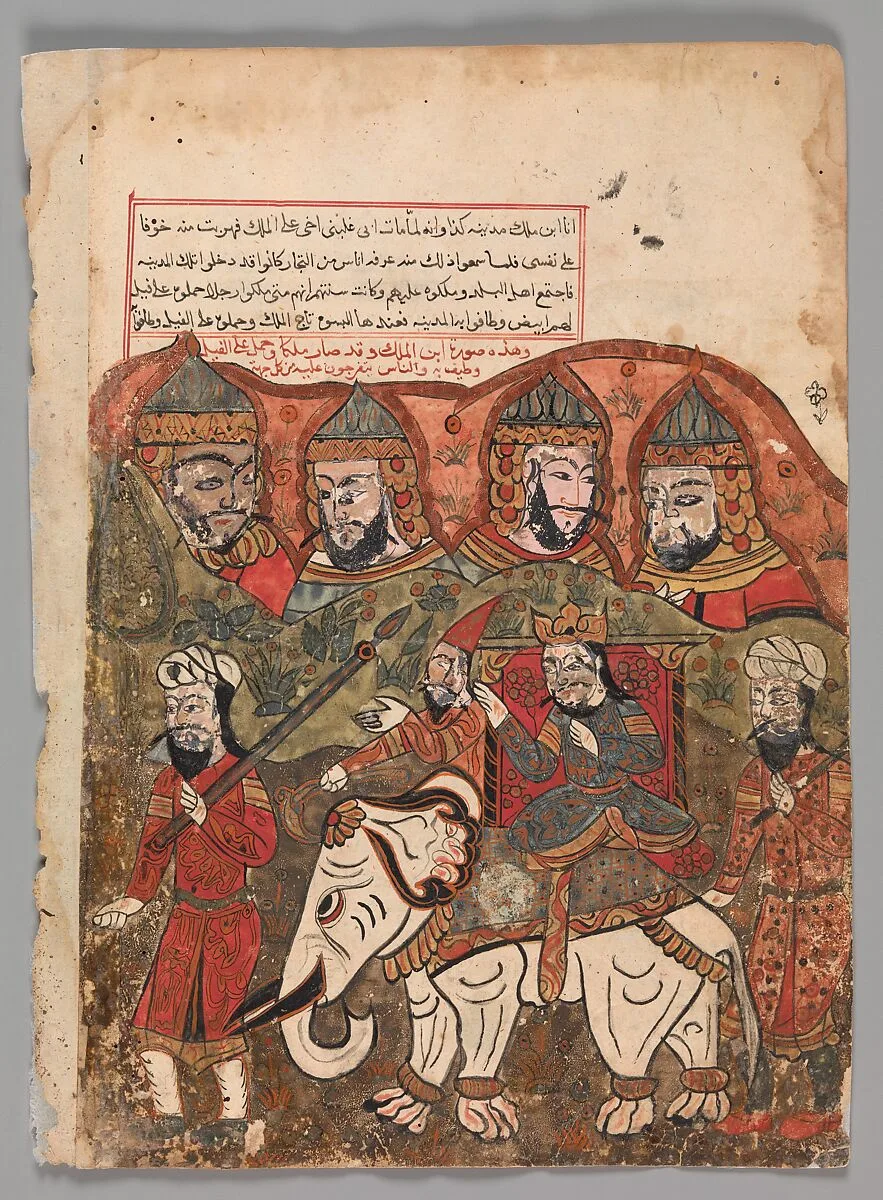 انا ابن ملك مدينه كذا وانه لما مات ابى غلبنى اخى على الملك فهربت منه خوفا
على نفسى فلما سمعوا ذلك منه عرفه اناس من التجار كانوا قد دخلوا تلك المدينه
فاجتمع اهل البلد وملكوه عليهم وكانت سنتهم انهم متى ملكوا رجلا حملوه على فيل
لهم ابيض وطافوا به المدينه فعندها البسوه تاج الملك وحملوه على الفيل وطافوا
وهذه صورة ابن الملك وقد صار ملكا وحمل على الفيل
وطيف به والناس يتفرجون عليه من كل جهة